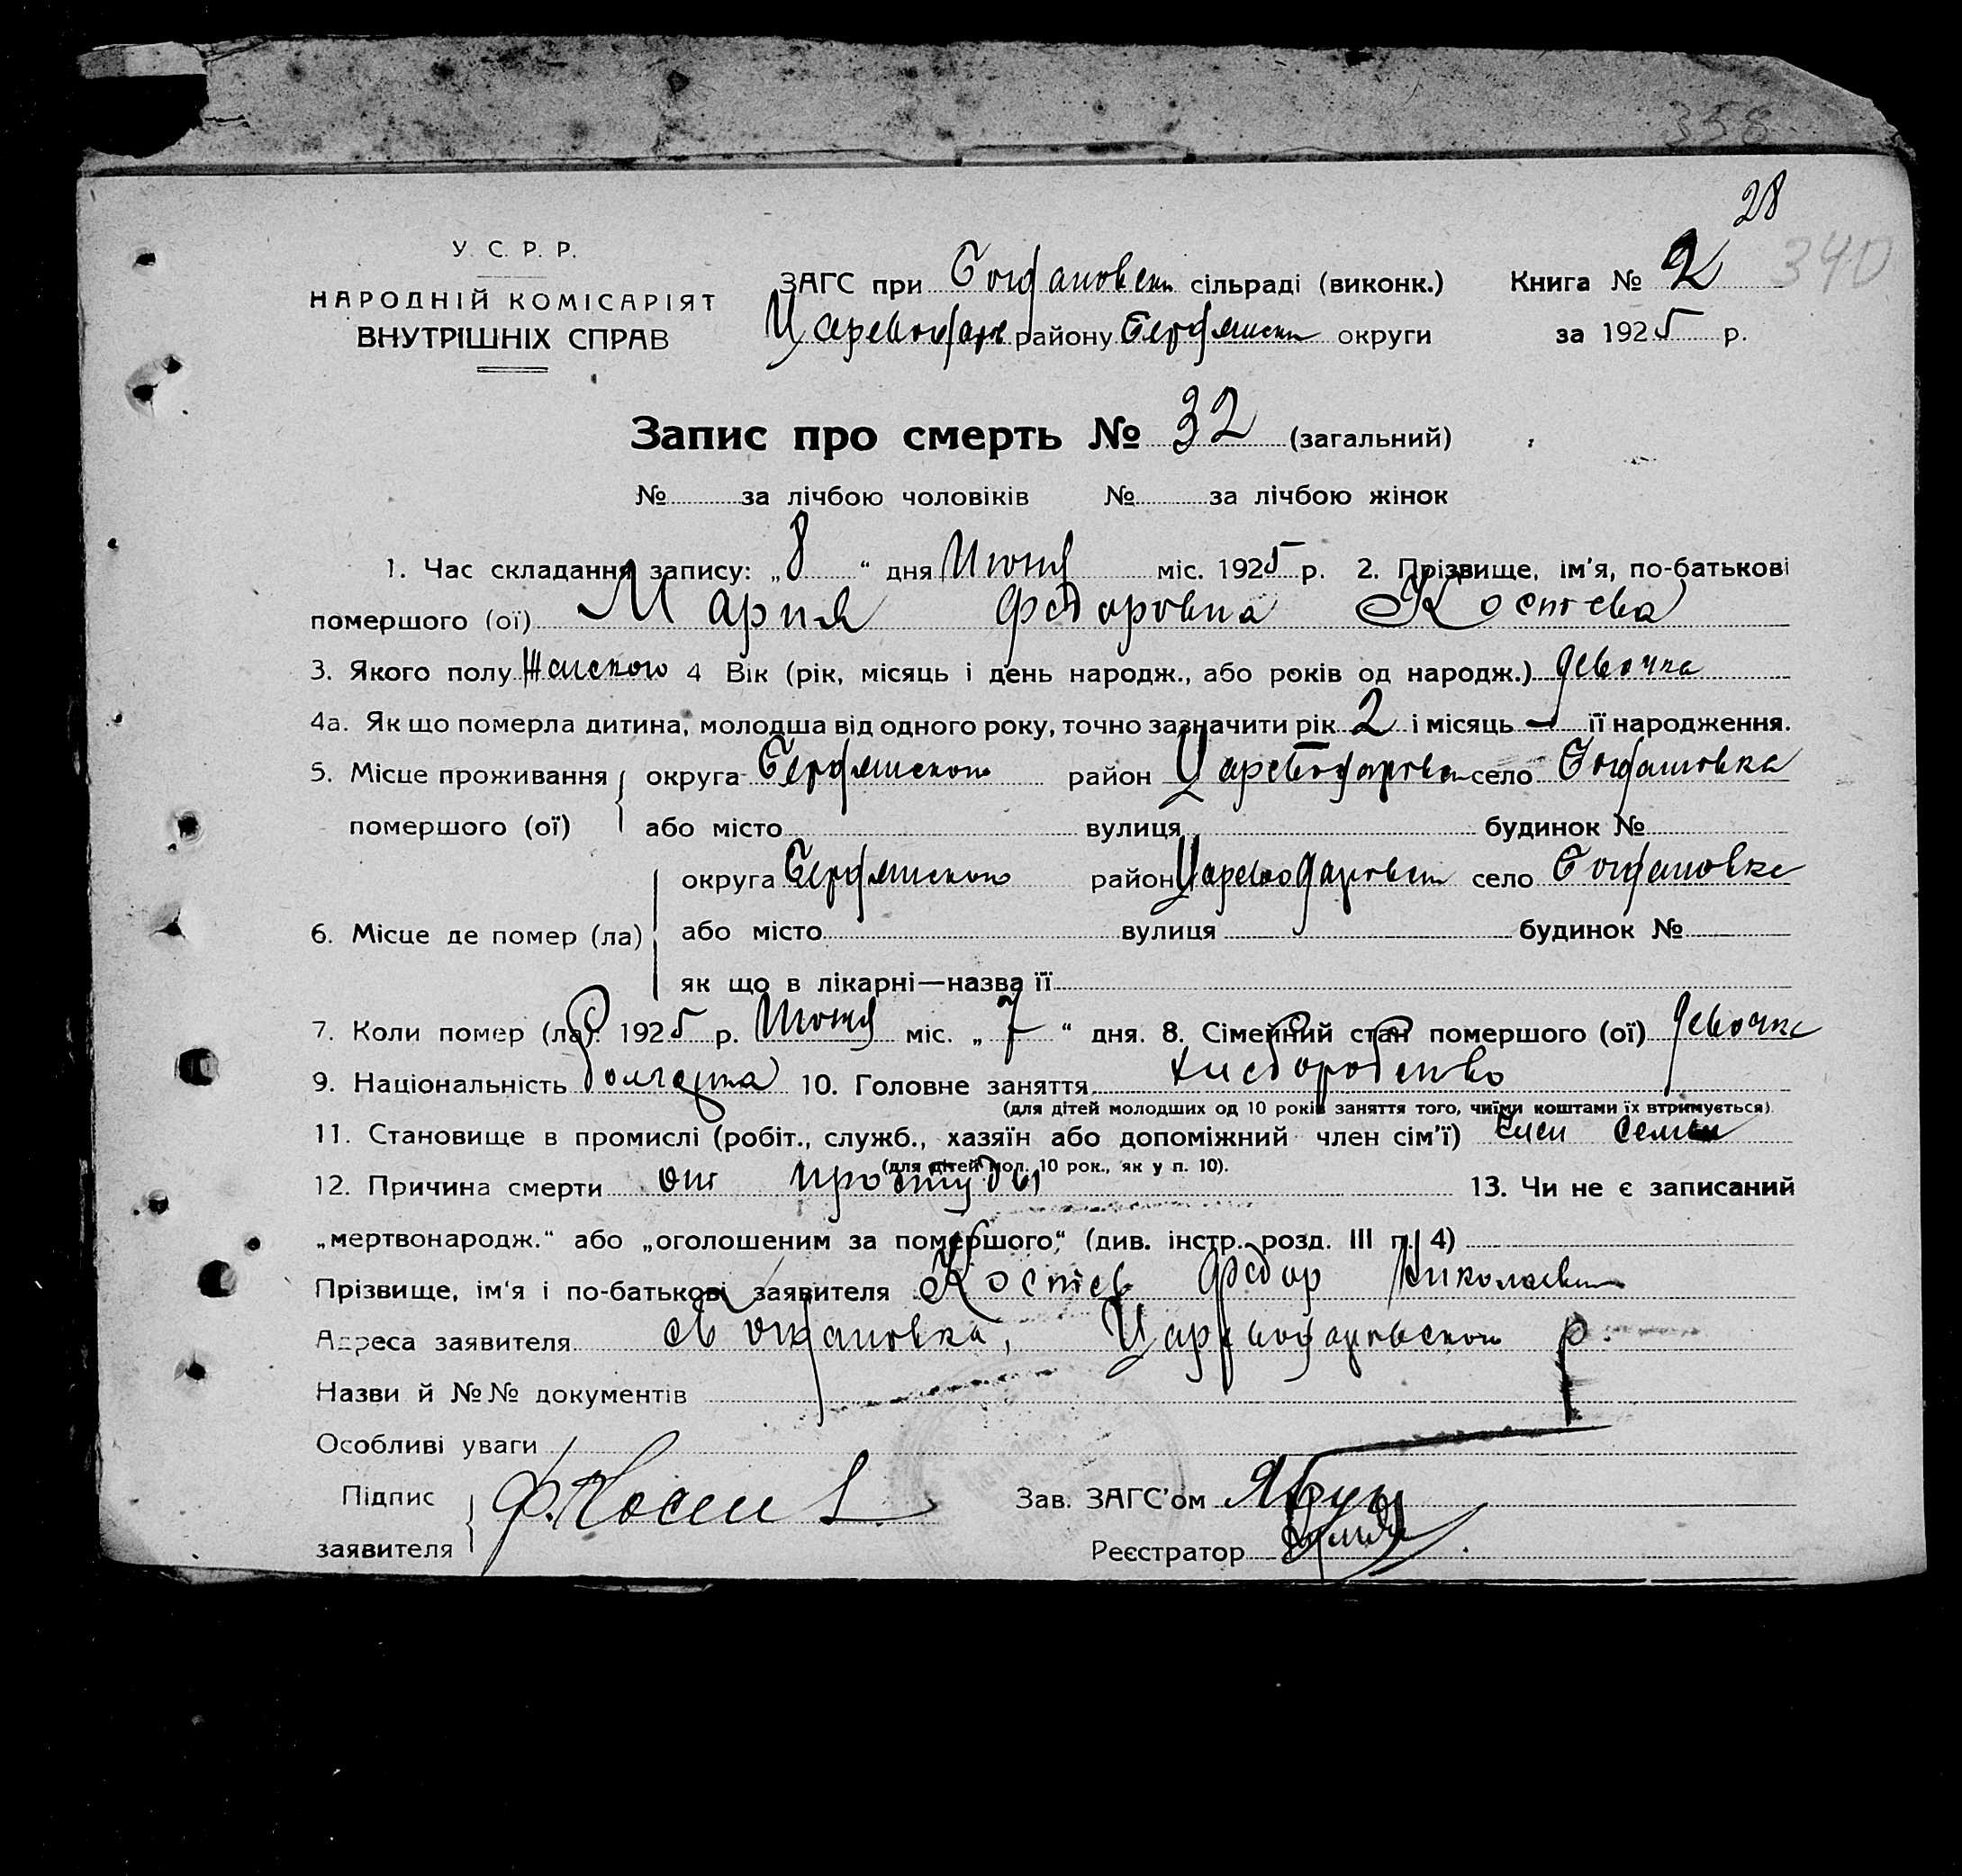 358
28
340
У. С. Р. Р.
НАРОДНІЙ КОМІСАРІЯТ
ВНУТРІШНІХ СПРАВ
ЗАГС при Богдановск сільраді (виконк.) Книга № 2
Цареводар району Бердянск округи за 1925 р.
Запис про смерть № 32 (загальний)
№ за лічбою чоловіків № за лічбою жінок
1. Час складання запису: „8“ дня Июня міс. 1925 р. 2. Прізвище, ім'я, по-батькові
помершого (ої) Мария Федоровна Костева
3. Якого полу Женского 4 Вік (рік, місяць і день народж., або років од народж.) девочка
4а. Як що померла дитина, молодша від одного року, точно зазначити рік 2 і місяць — її народження.
5. Місце проживання округа Бердянского район Цареводаровск село Богдановка
помершого (ої) або місто вулиця будинок №
округа Бердянского район Цареводаровск село Богдановке
6. Місце де помер (ла) або місто вулиця будинок №
як що в лікарні—назва її
7. Коли помер (ла). 1925 р. Июня міс. „7“ дня. 8. Сімейний стан помершого (ої) девочка
9. Національність болгарка 10. Головне заняття хлебородство
(для дітей молодших од 10 років заняття того, чиїми коштами їх втримується).
11. Становище в промислі (робіт., служб., хазяїн або допоміжний член сім'ї) Член семьи
(для дітей мол. 10 рок., як у п. 10).
12. Причина смерти от простуды 13. Чи не є записаний
„мертвонародж.“ або „оголошеним за помершого“ (див. інстр. розд. III п. 4)
Прізвище, ім'я і по-батькові заявителя Костев Федор Николаевич
Адреса заявителя Богдановка, Цареводаровского р.
Назви й №№ документів
Особливі уваги
Підпис Ф. Костев Зав. ЗАГС'ом
заявителя Реєстратор